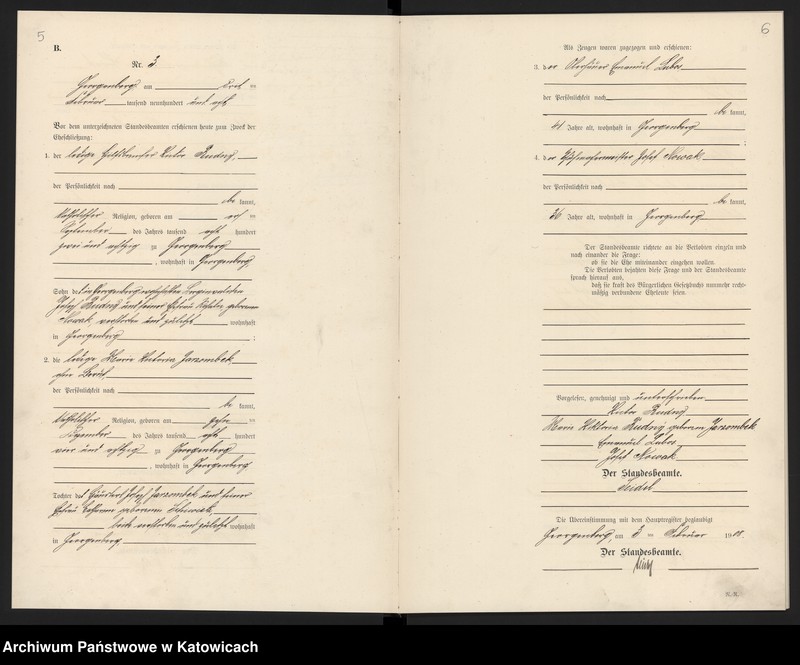 5
B.
Nr. 3
Georgenberg am
Februar tausend neunhundert und acht
Vor dem unterzeichneten Standesbeamten erschienen heute zum Zweck der
Eheschließung:
1. der ledige Rudny
der Persönlichkeit nach
be kannt,
katholischer Religion, geboren am
September des Jahres tausend acht hundert
zwei und achtzig zu Georgenberg
, wohnhaft in Georgenberg
Sohn des in Georgenberg
Josef Rudny und seiner Ehefrau geborenen
Nowak, verstorben und zuletzt wohnhaft
in Georgenberg ;
2. die ledige Marie Viktoria Jarzombek
ohne Beruf
der Persönlichkeit nach
be kannt,
katholischer Religion, geboren am zehn ten
Dezember des Jahres tausend acht hundert
vier und achtzig zu Georgenberg
, wohnhaft in Georgenberg
Tochter des Häuslers Josef Jarzombek und seiner
Ehefrau geborenen
beide verstorben und zuletzt wohnhaft
in Georgenberg
6
Als Zeugen waren zugezogen und erschienen:
3. der Emanuel Lubos
der Persönlichkeit nach
be kannt,
41 Jahre alt, wohnhaft in Georgenberg
;
4. der Josef Nowak
der Persönlichkeit nach
be kannt,
36 Jahre alt, wohnhaft in Georgenberg
Der Standesbeamte richtete an die Verlobten einzeln und
nach einander die Frage:
ob sie die Ehe miteinander eingehen wollen.
Die Verlobten bejahten diese Frage und der Standesbeamte
sprach hierauf aus,
daß sie kraft des Bürgerlichen Gesetzbuchs nunmehr recht-
mäßig verbundene Eheleute seien.
Vorgelesen, genehmigt und unterschrieben
Rudny
Marie Viktoria Rudny geborene Jarzombek
Emanuel Lubos
Josef Nowak
Der Standesbeamte.
Die Übereinstimmung mit dem Hauptregister beglaubigt
Georgenberg, am 3 ten Februar 1908.
Der Standesbeamte.
Archiwum Państwowe w Katowicach